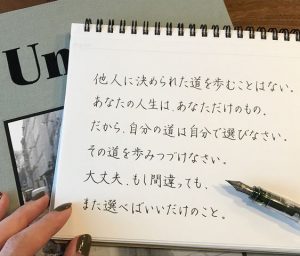 Un
他人に決められた道を歩むことはない。
あなたの人生は、あなただけのもの。
だから、自分の道は自分で選びなさい。
その道を歩みつづけなさい。
大丈夫、もし間違っても、
また選べばいいだけのこと。